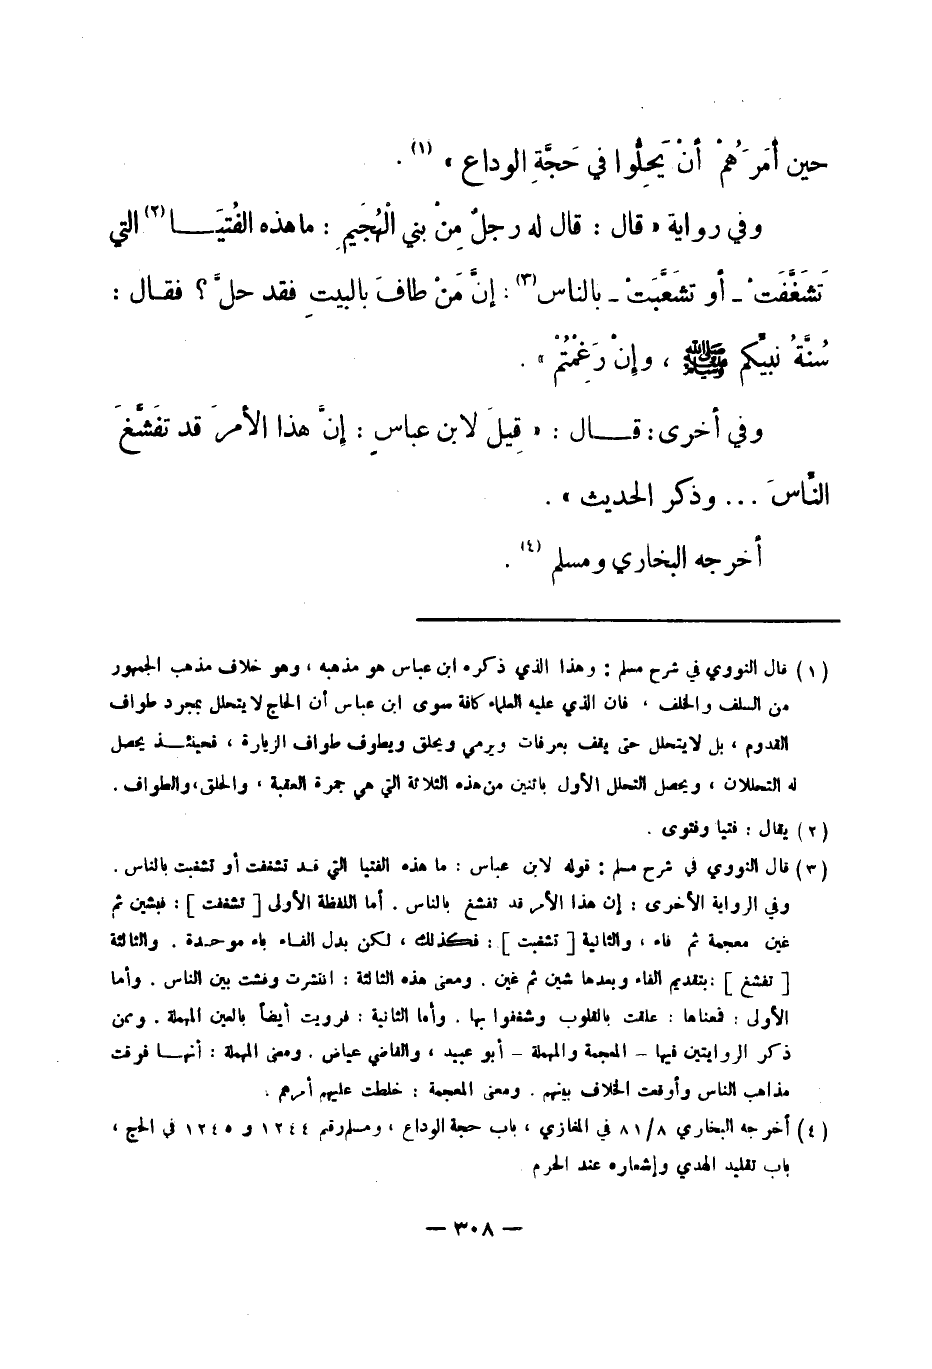 حين أَمَرَهُمْ أنْ يَحِلُّوا في حَجَّةِ الوداع » (١) .
وفي رواية « قال : قال له رجلٌ مِنْ بني الْهُجَيمِ : ما هذه الفُتيَـــا(٢) التي
تَشَغَّفَتْ ـ أو تشَغَّبَتْ ـ بالناس(٣) : إنَّ مَنْ طافَ بالبيتِ فقد حلَّ ؟ فقـال :
سُنَّةُ نبيِّكم ﷺ ، وإنْ رَغِمْتُمْ » .
وفي أخرى : قــال : « قِيلَ لابن عباسٍ : إنَّ هذا الأمرَ قد تَفَشَّغَ
النَّاسَ ... وذكر الحديث » .
أخرجه البخاري ومسلم (٤) .
(١) قال النووي في شرح مسلم : وهذا الذي ذكره ابن عباس هو مذهبه ، وهو خلاف مذهب الجمهور
من السلف والخلف ، فان الذي عليه العلماء كافة سوى ابن عباس أن الحاج لايتحلل بمجرد طواف
القدوم ، بل لايتحلل حتى يقف بعرفات ويرمي ويحلق ويطوف طواف الزيارة ، فحينئـذ يحصل
له التحللان ، ويحصل التحلل الأول باثنين من هذه الثلاثة التي هي جمرة العقبة ، والحلق ، والطواف .
(٢) يقال : فتيا وفتوى .
(٣) قال النووي في شرح مسلم : قوله لابن عباس : ما هذه الفتيا التي قـد تشغفت أو تشغبت بالناس .
وفي الرواية الأخرى : إن هذا الأمر قد تفشغ بالناس . أما اللفظة الأولى [ تشغفت ] : فبشين ثم
غين معجمة ثم فاء ، والثانية [ تشغبت ] : فكذلك ، لكن بدل الفـاء باء موحـدة . والثالثة
[ تفشغ ] : بتقديم الفاء وبعدها شين ثم غين . ومعنى هذه الثالثة : انتشرت وفشت بين الناس . وأما
الأولى : فمعناها : علقت بالقلوب وشغفوا بها . وأما الثانية : فرويت أيضاً بالعين المهملة . وممن
ذكر الروايتين فيها – المعجمة والمهملة – أبو عبيد ، والقاضي عياض . ومعنى المهملة : أنهـا فرقت
مذاهب الناس وأوقعت الخلاف بينهم . ومعنى المعجمة : خلطت عليهم أمرهم .
(٤) أخرجه البخاري ٨١/٨ في المغازي ، باب حجة الوداع ، ومسلم رقم ١٢٤٤ و ١٢٤٥ في الحج ،
باب تقليد الهدي وإشعاره عند الحرم
— ٣٠٨ —